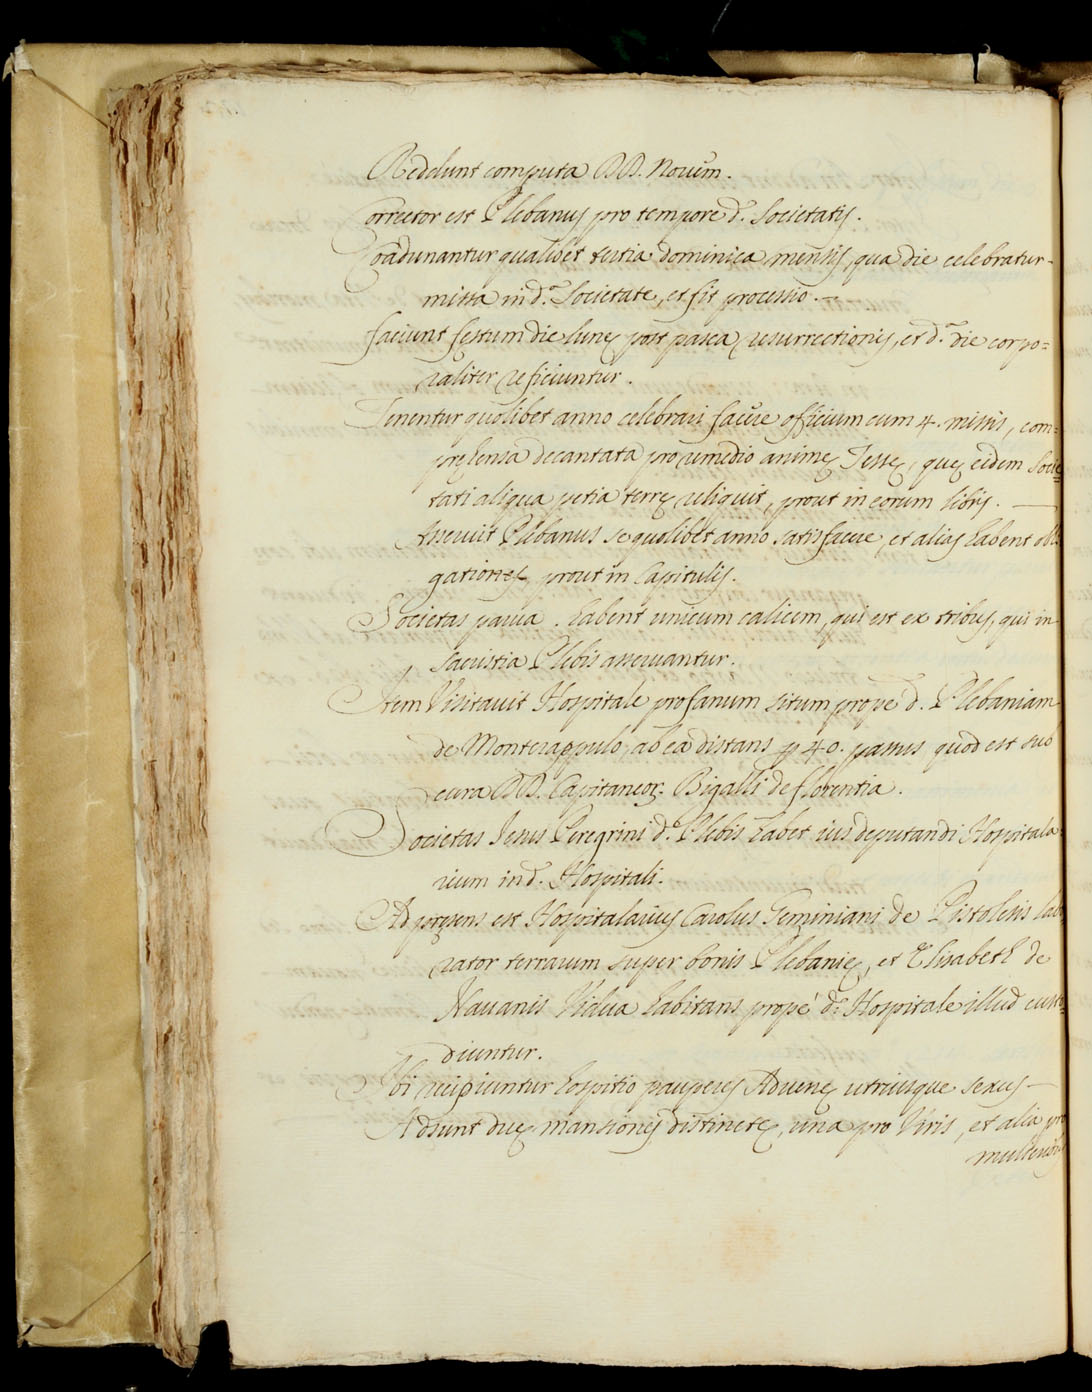 Reddunt computa DD. Novem.
Corrector est Plebanus pro tempore d. Societatis.
Coadunantur qualibet tertia dominica mensis, qua die celebratur
missa in d.ª Societate, et fit processio.
Faciunt festum die lunę post pasca resurrectionis, et d.ª die corpo=
raliter reficiuntur.
Tenentur quolibet anno celebrari facere officium cum 4. missis, com=
pręhensa decantata pro remedio animę Tessę, quę eidem Socie=
tati aliqua petia terrę reliquit, prout in eorum libris.
Asseruit Plebanus se quolibet anno satisfacere, et alias habent obli
gationes, prout in Capitulis.
Societas parva. habent unicum calicem, qui est ex tribus, qui in
Sacristia Plebis asservantur.
Item Visitavit Hospitale profanum situm prope d. Plebaniam
de Monterappulo, ab ea distans p 40. passus quod est sub
cura DD. Capitaneor. Bigalli de florentia.
Societas Jesus Peregrini d. Plebis habet ius deputandi Hospitala=
rium in d. Hospitali.
Ad pręsens est Hospitalarius Carolus Geminiani de Pistolesis labo
rator terrarum super bonis Plebanię, et Elisabeth de
Navanis Vidua habitans propé d. Hospitale illud custo=
diuntur.
Ibi recipiuntur hospitio pauperes Advenę utriusque sexus
Adsunt duę mansiones distinctę, una pro Viris, et alia pro
mulierib